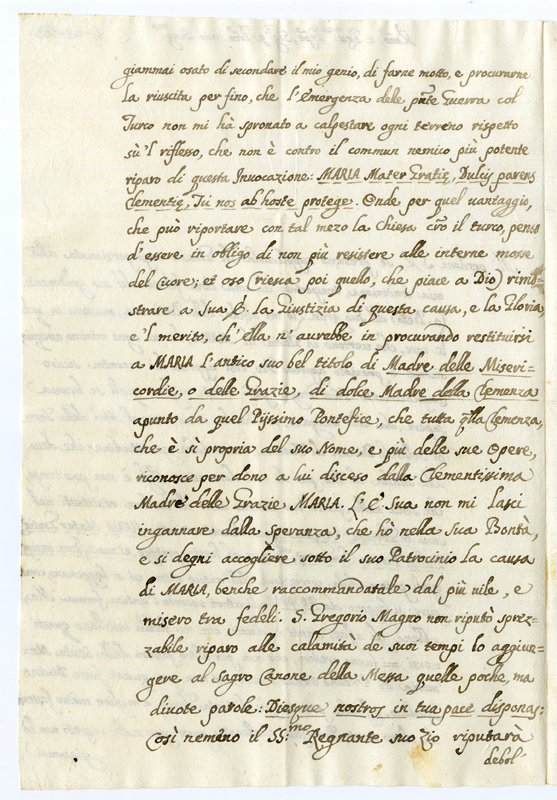 giammai osato di secondare il mio genio, di farne motto, e procurarne
la riuscita per fino, che l'emergenza delle pnte Guerra col
Turco non mi hà spronato a calpestare ogni terreno rispetto
sù 'l riflesso, che non è contro il commun nemico più potente
riparo di questa Invocazione: MARIA Mater Gratię, Dulcis parens
Clementię, Tu nos ab hoste protege. Onde per quel vantaggio,
che può riportare con tal mezo la Chiesa cro il turco, penso
d'essere in obligo di non più resistere alle interne mosse
del Cuore; et oso (riesca poi quello, che piace a Dio) rimo=
strare a Sua E. la Giustizia di questa causa, e la Gloria,
e 'l merito, ch' ella n' aurebbe in procurando restituirsi
a MARIA l'antico suo bel titolo di Madre delle Miseri=
cordie, o delle Grazie, di dolce Madre della Clemenza
apunto da quel Pijssimo Pontefice, che tutta qlla Clemenza,
che è sì propria del suo Nome, e più delle sue Opere,
riconosce per dono a lui disceso dalla Clementissima
Madre delle Grazie MARIA. L' E Sua non mi lasci
ingannare dalla Speranza, che hò nella Sua Bontà,
e si degni accogliere sotto il suo Patrocinio la causa
di MARIA, benche raccommandatale dal più uile, e
misero tra fedeli. S. Gregorio Magno non riputò sprez=
zabile riparo alle calamità de suoi tempi lo aggiun=
gere al Sagro Canone della Messa quelle poche, ma
diuote parole: Diesque nostros in tua pace disponas:
Così nemeno il SS.mo Regnante suo zio riputarà
debol'